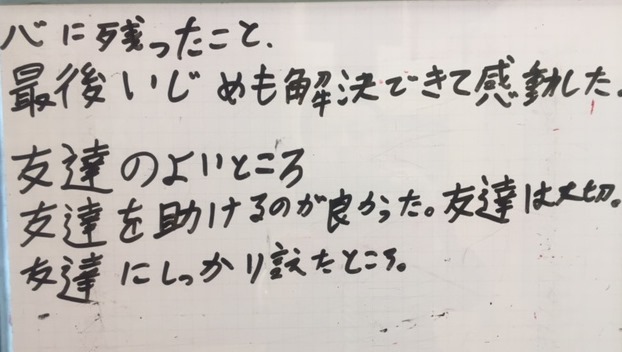 心に残ったこと、
最後いじめも解決できて感動した。
友達のよいところ
友達を助けるのが良かった。友達は大切。
友達にしっかり言えたところ。